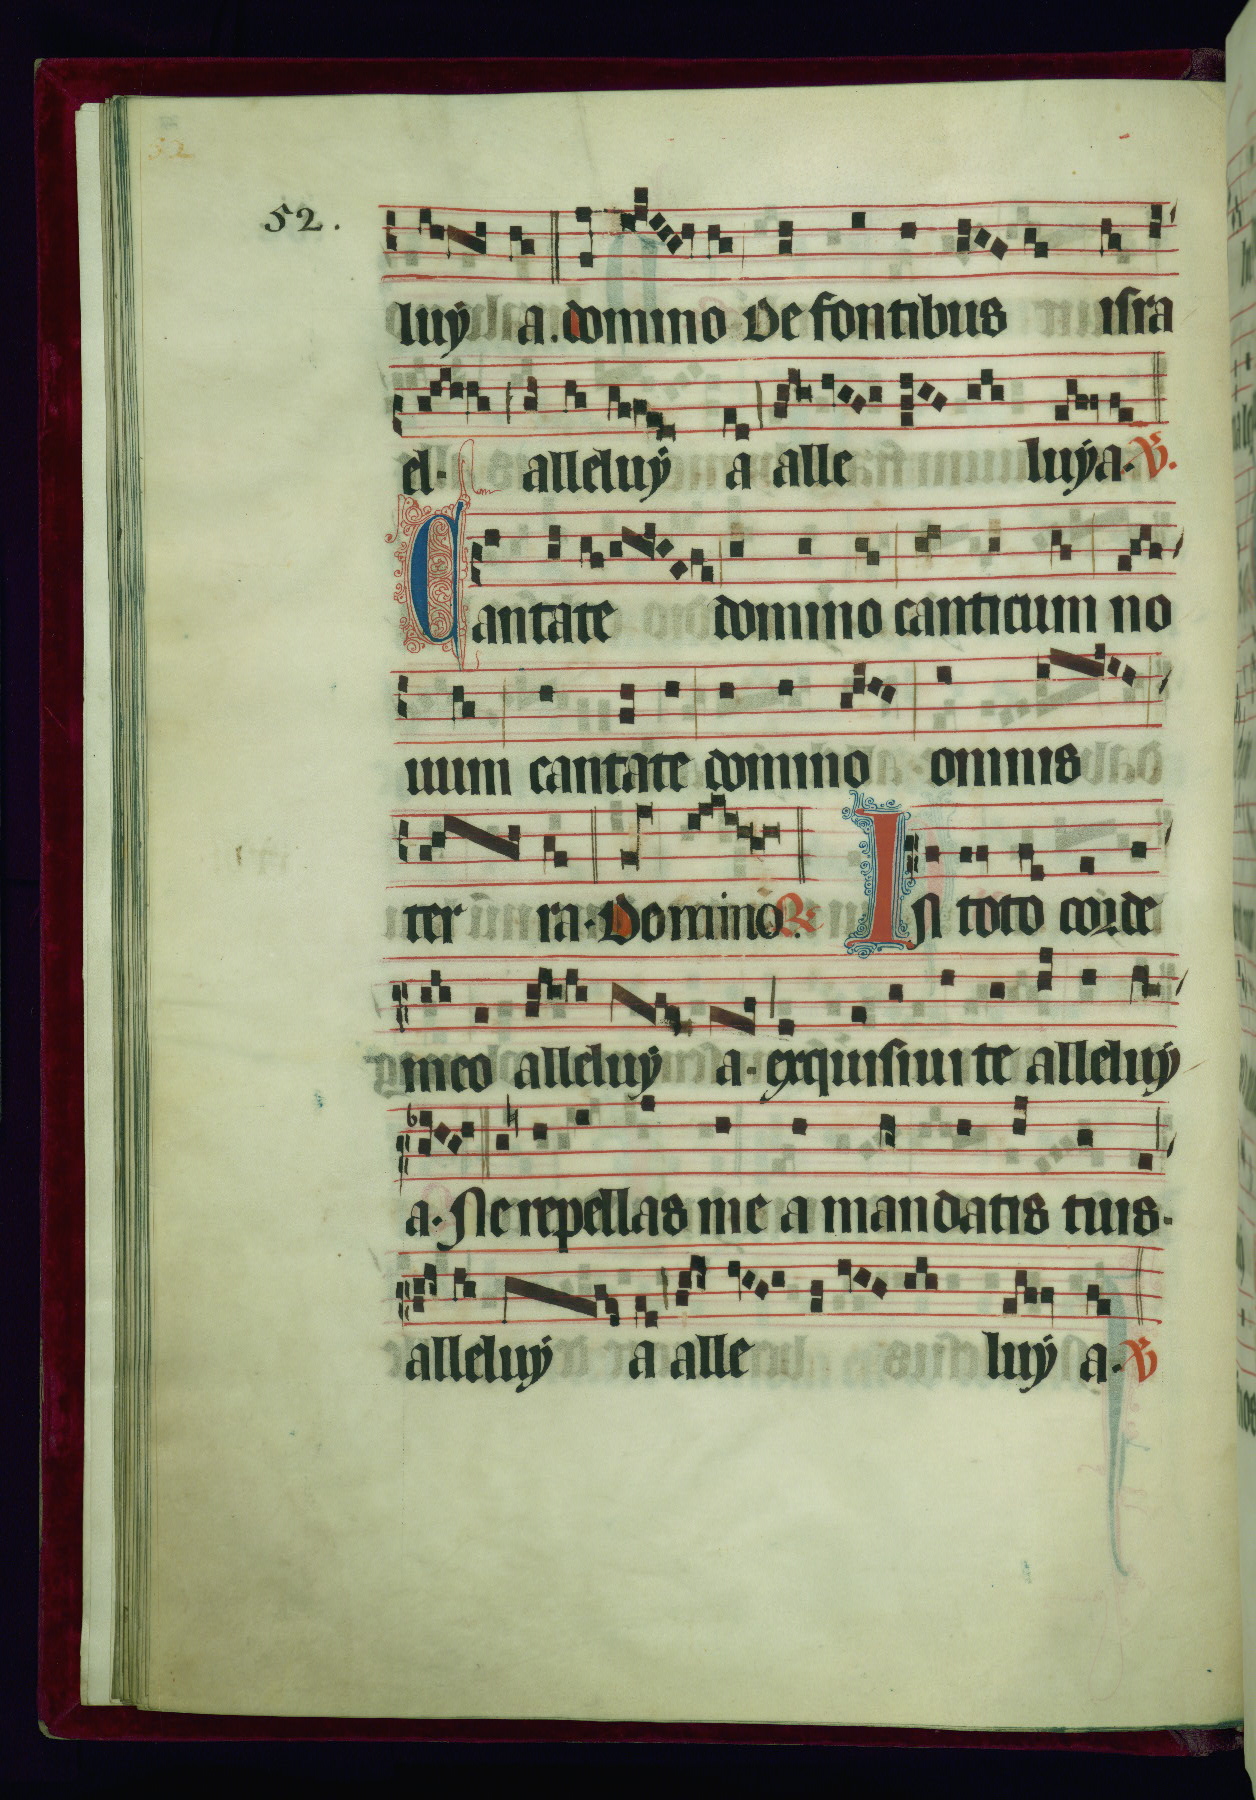 52.
luÿ a. domino De fontibus isra
el. alleluÿ a alle luÿa. V.
Cantate domino canticum no
uum cantate domino omnis
ter ra. Domino. R. In toto corde
meo alleluÿ a. exquisiui te alleluÿ
a. Ne repellas me a mandatis tuis.
alleluÿ a alle luÿ a. V